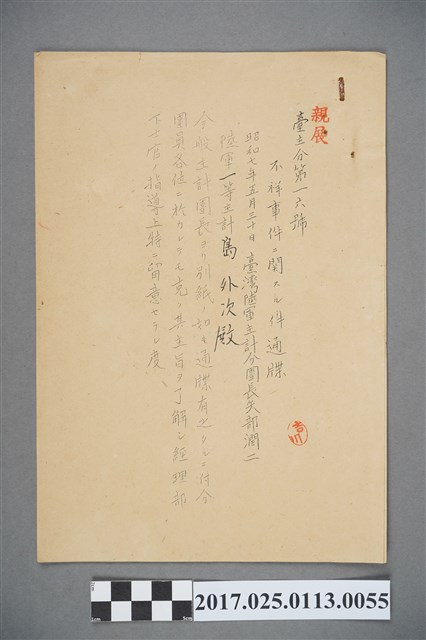 親展
臺主分第一六號
不祥事件ニ関スル件通牒
昭和七年五月三十日 臺湾陸軍主計分團長矢部潤二
陸軍一等主計 島外次殿
今般主計團長ヨリ別紙ノ如ク通牒有之タルニ付分
團員各位ニ於カレテモ克ク其主旨ヲ了解シ経理部
下士官ノ指導上特ニ留意セラレ度
2017.025.0113.0055